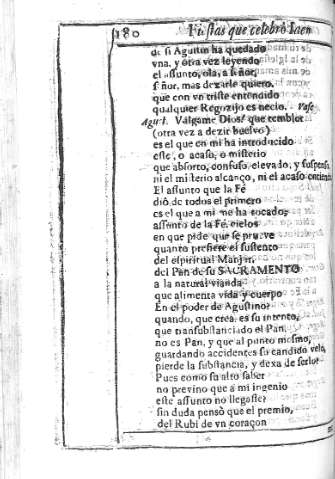 180 Fiestas que celebrò Iaen
de si Agustin ha quedado
vna, y otra vez leyendo
el assunto, ola, a señor,
señor, mas dexarle quiero,
que con vn triste entendido
qualquier Regozijo es necio. Vase
Agust. Válgame Dios! que temblor
(otra vez a dezir buelvo)
es el que en mi ha introducido
este, o acaso, o misterio
que absorto, confuso, elevado, y suspenso
ni el misterio alcanço, ni el acaso entiendo
El assunto que la Fé
dió de todos el primero
es el que a mi me ha tocado,
assunto de la Fé, cielos
en que pide que se prueve
quanto prefiere el sustento
del espiritual Manjar,
del Pan de su SACRAMENTO
a la natural vianda
que alimenta vida y cuerpo
En el poder de Agustino?
quando, que crea es su intento,
que transubstanciado el Pan,
no es Pan, y que al punto mesmo,
guardando accidentes su candido velo,
pierde la substancia, y dexa de serlo?
Pues como su alto saber
no previno que a mi ingenio
este assunto no llegasse?
sin duda pensò que el premio,
del Rubi de vn coraçon